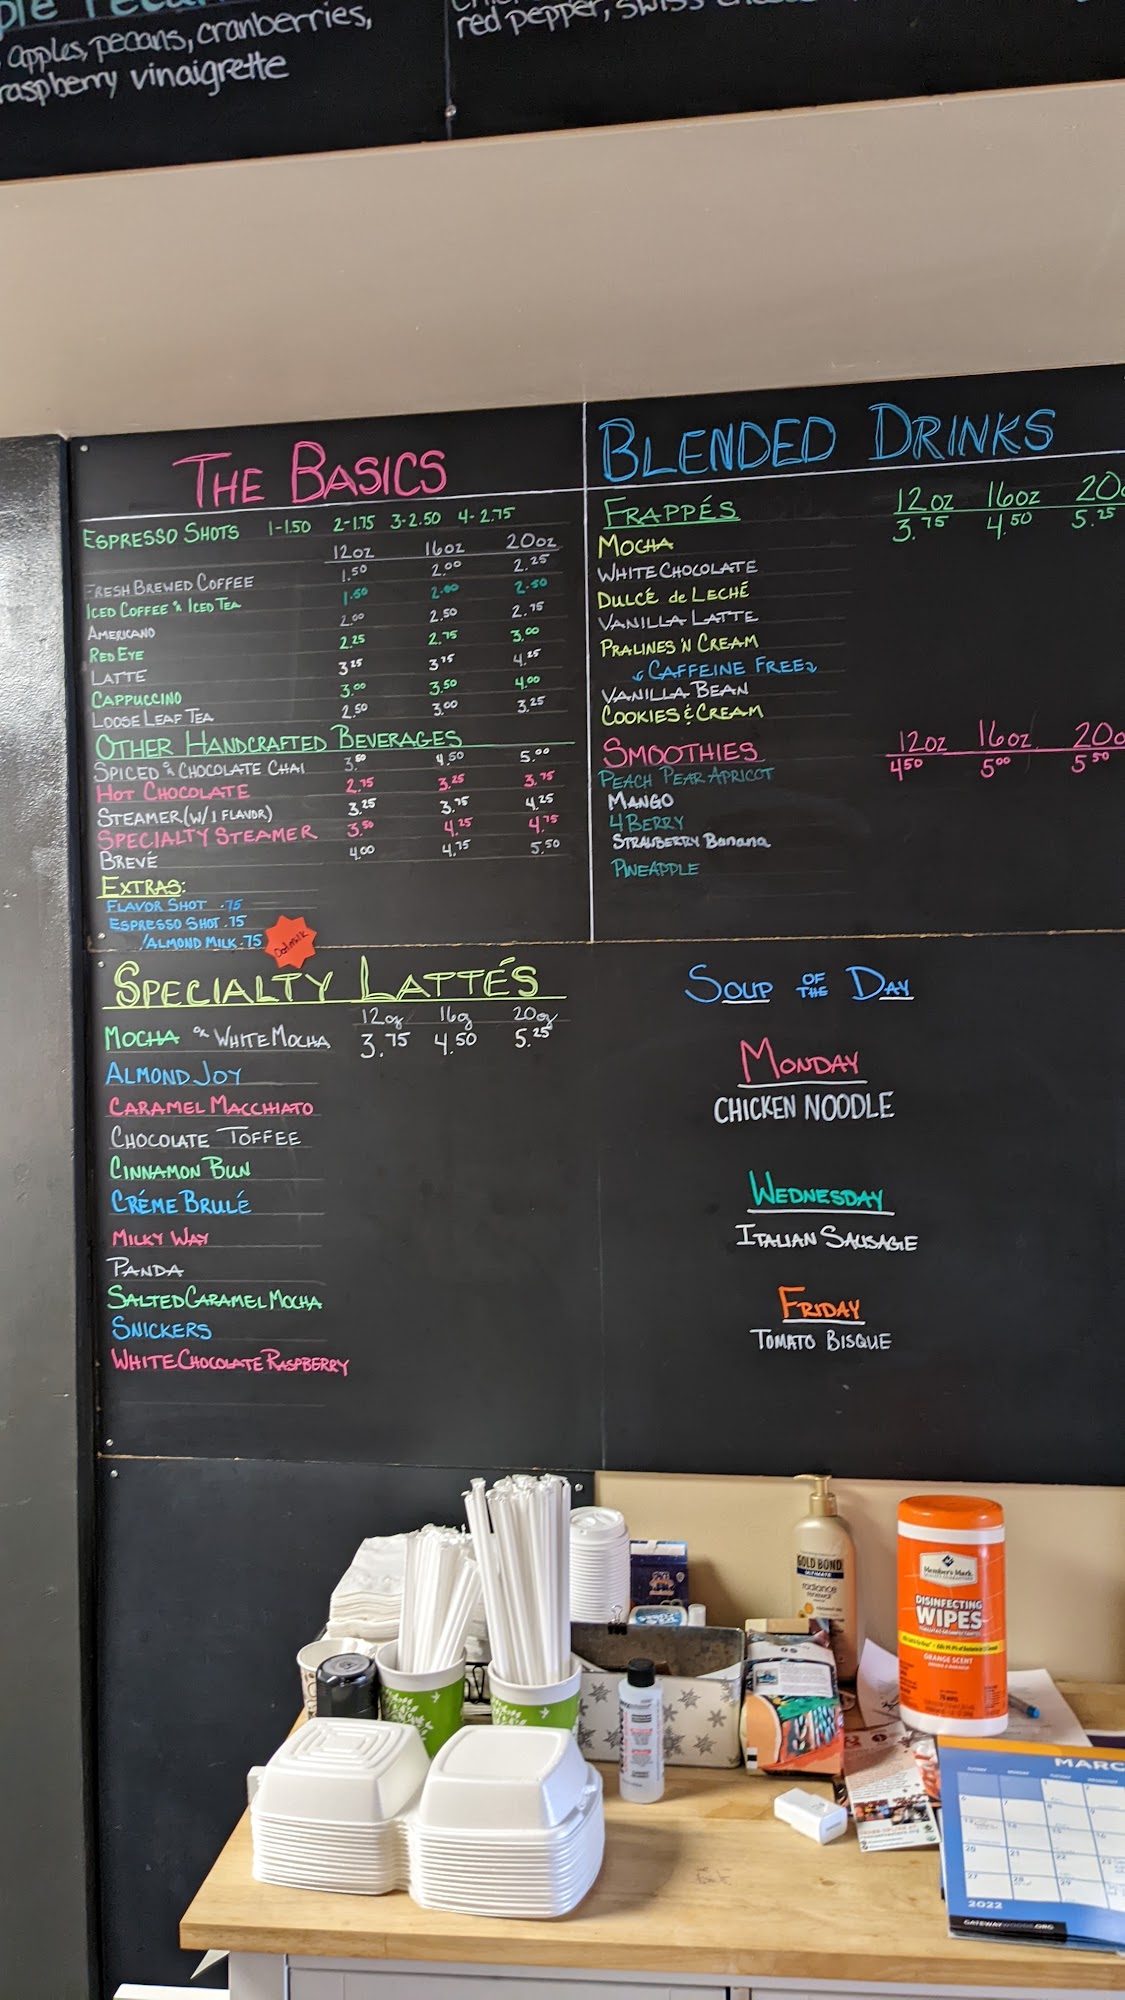 apples, pecans, cranberries,
raspberry vinaigrette
red pepper, swiss
THE BASICS
ESPRESSO SHOTS 1-1.50 2-1.75 3-2.50 4-2.75
12oz 16oz 20oz
FRESH BREWED COFFEE 1.50 2.00 2.25
ICED COFFEE & ICED TEA 1.50 2.00 2.50
AMERICANO 2.00 2.50 2.75
RED EYE 2.25 2.75 3.00
LATTE 3.25 3.75 4.25
CAPPUCCINO 3.00 3.50 4.00
LOOSE LEAF TEA 2.50 3.00 3.25
OTHER HANDCRAFTED BEVERAGES
SPICED or CHOCOLATE CHAI 3.80 4.50 5.00
HOT CHOCOLATE 2.75 3.25 3.75
STEAMER (W/1 FLAVOR) 3.25 3.75 4.25
SPECIALTY STEAMER 3.50 4.25 4.75
BREVÉ 4.00 4.75 5.50
EXTRAS:
FLAVOR SHOT .75
ESPRESSO SHOT .75
/ALMOND MILK .75
Oatmilk
BLENDED DRINKS
FRAPPÉS 12oz 16oz 20o
3.75 4.50 5.25
MOCHA
WHITE CHOCOLATE
DULCÉ de LECHÉ
VANILLA LATTE
PRALINES 'N CREAM
CAFFEINE FREE
VANILLA BEAN
COOKIES & CREAM
SMOOTHIES 12oz 16oz 20o
4.50 5.00 5.50
PEACH PEAR APRICOT
MANGO
4 BERRY
STRAWBERRY Banana
PINEAPPLE
SPECIALTY LATTÉS
12oz 16oz 20oz
MOCHA or WHITE MOCHA 3.75 4.50 5.25
ALMOND JOY
CARAMEL MACCHIATO
CHOCOLATE TOFFEE
CINNAMON BUN
CRÉME BRULÉ
MILKY WAY
PANDA
SALTED CARAMEL MOCHA
SNICKERS
WHITE CHOCOLATE RASPBERRY
SOUP OF THE DAY
MONDAY
CHICKEN NOODLE
WEDNESDAY
ITALIAN SAUSAGE
FRIDAY
TOMATO BISQUE
GOLD BOND
ULTIMATE
radiance
renewal
Member's Mark
DISINFECTING
WIPES
ORANGE SCENT
MARC
2022
GATEWAYWOODS.ORG